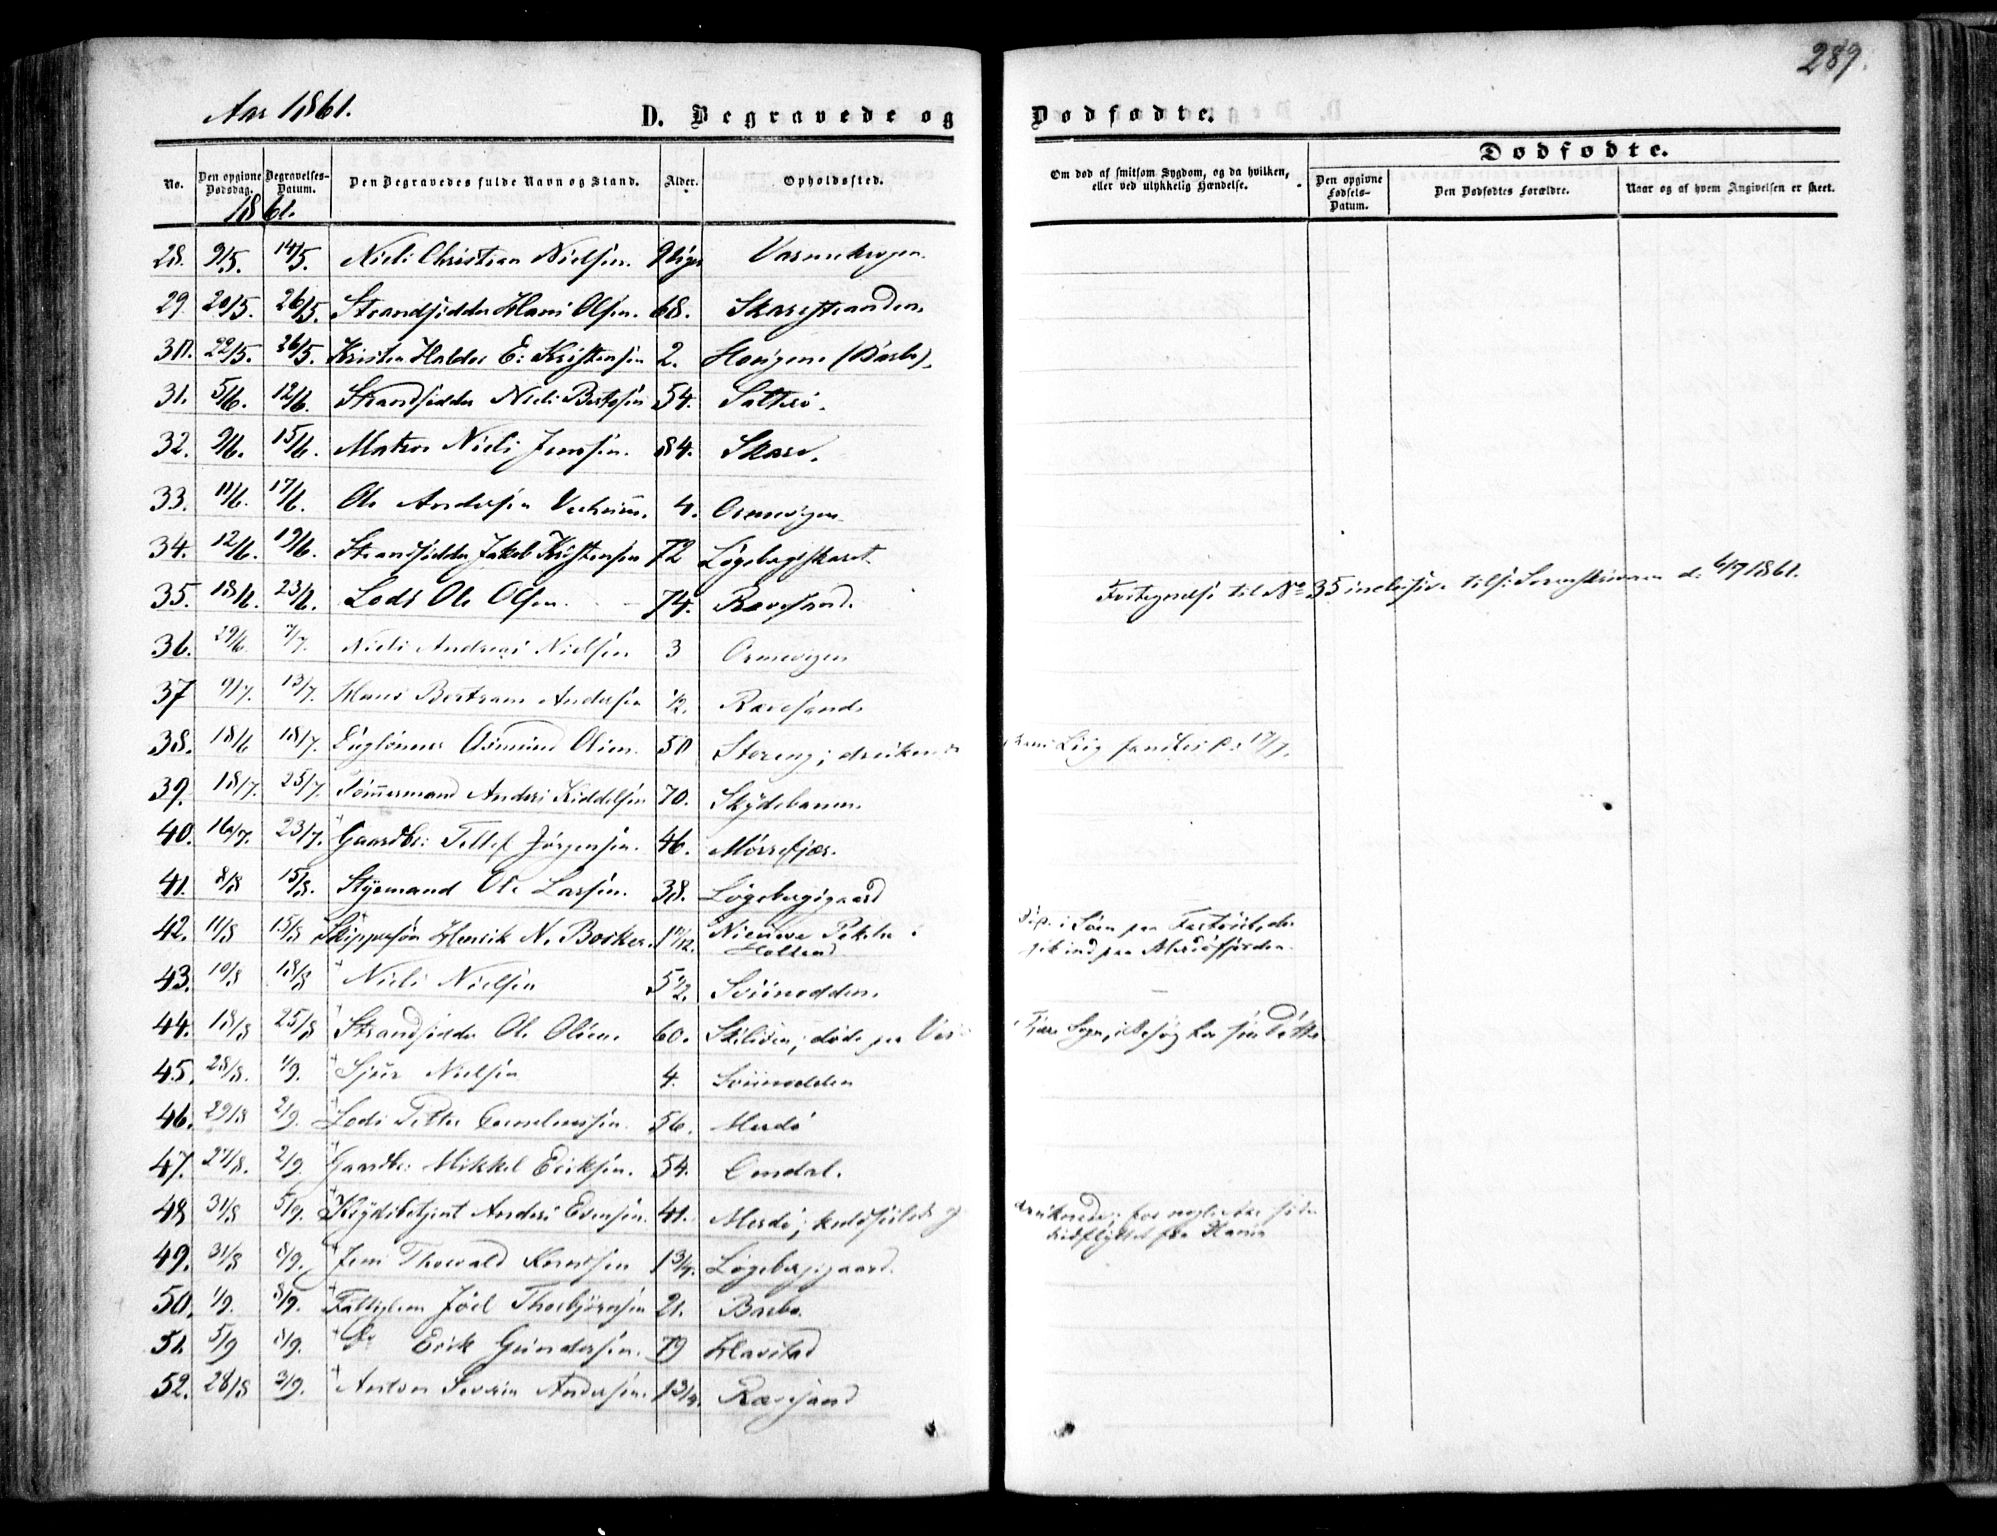 289.
Aar 1861.
D. Begravede og Dødfødte.
No.
Den opgivne Dødsdag.
Begravelses-Datum.
Den Begravedes fulde Navn og Stand.
Alder.
Opholdssted.
Om død af smitsom Sygdom, og da hvilken, eller ved ulykkelig Hændelse.
Dødfødte.
Den opgivne Fødsels-Datum.
Den Dødfødtes Forældre.
Naar og af hvem Angivelsen er skeet.
1861.
28. 9/5. 14/5. Niels Christian Nielsen.
29. 20/5. 26/5. Strandsidder Hans Olsen. 68. Skarestranden.
30. 22/5. 26/5. Kristen Halder E: Kristensen 2. (Barbo).
31. 5/6. 12/6. Strandsidder Niels Bertsen 54. Salterø.
32. 9/6. 15/6. Matros Niels Jenssen. 84. Skare.
33. 11/6. 17/6. Ole Andersen 4. Ormevigen
34. 12/6. 19/6. Strandsidder Jakob Kristensen 72 Løgebergskaret
35. 18/6. 23/6. Lods Ole Olsen. 74. Rævesand. Fortegnelse til No 35 inclusive tils: Sorenskriveren d. 6/7 1861.
36. 29/6. 7/7. Niels Andreas Nielsen 3 Ormevigen
37 9/7. 13/7. Hans Bertram Andersen 1/2. Rævesand.
38. 18/6 18/7. Osmund Olsen. 50 Støreng; Liig fandtes 17/7.
39. 18/7. 25/7. Tømmermand Anders Kiddelsen 70. Skydebanen.
40. 16/7. 23/7. Gaardbr: Tellef Jørgensen. 46. Mørrefjær.
41. 8/8 15/8. Styrmand Ole Larsen. 38. Løgebergsgaard
42. 11/8 15/8 Skippersøn Henrik N. Boeker. 1 10/12. Pekela i Holland i Søen paa
43. 10/8 18/8 Niels Nielsen 5 1/2. Sviinodden.
44. 18/8 25/8 Strandsidder Ole Olsen. 60. døde paa Sogn, i Besøg hos sin Datter
45. 28/8. 1/9. Sjur Nielsen 4. Sviinodden
46. 29/8 2/9. Lods Petter Corneliussen. 56. Merdø
47. 27/8. 2/9. Gaardbr: Mikkel Eriksen. 54. Omdal.
48 31/8 5/9. Anders Evensen. 41. Merdø; for nylig
hidflyttet fra
49. 31/8 8/9. Jens Thorvald Knudsen 1 3/4. Løgebergsgaard.
50. 1/9. 8/9. Fattiglem Joel Thorbjørnsen 21. Barbo.
51. 5/9 8/9. Do Erik Gundersen. 79 Havstad
52. 28/8 3/9. Anton Severin Andersen. 1 3/4. Rævesand